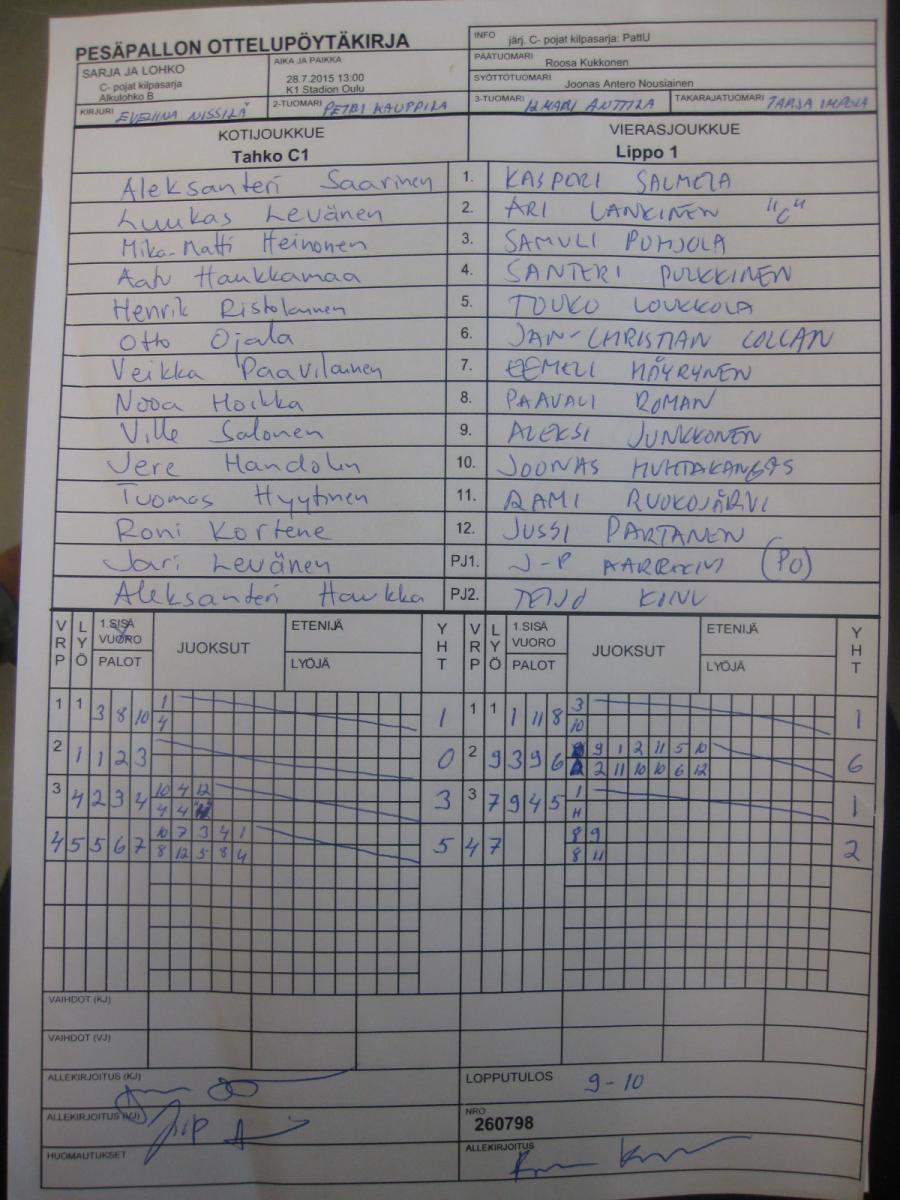 PESÄPALLON OTTELUPÖYTÄKIRJA
INFO järj. C- pojat kilpasarja: PattU
PÄÄTUOMARI Roosa Kukkonen
SARJA JA LOHKO
C- pojat kilpasarja
Alkulohko B
AIKA JA PAIKKA
28.7.2015 13:00
K1 Stadion Oulu
SYÖTTÖTUOMARI Joonas Antero Nousiainen
KIRJURI EVELIINA NISSILÄ 2-TUOMARI PETRI KAUPPILA 3-TUOMARI ILMARI ANTTILA TAKARAJATUOMARI TARJA IMPOLA
KOTIJOUKKUE VIERASJOUKKUE
Tahko C1 Lippo 1
Aleksanteri Saarinen 1. KASPERI SALMELA
Luukas Levänen 2. ARI LANKINEN "C"
Mika-Matti Heinonen 3. SAMULI POHJOLA
Aatu Haukkamaa 4. SANTERI PULKKINEN
Henrik Ristolainen 5. TOUKO LOUKKOLA
Otto Ojala 6. JAN-CHRISTIAN COLLAN
Veikka Paavilainen 7. EEMELI HÄYRYNEN
Nooa Hoikka 8. PAAVALI ROMAN
Ville Salonen 9. ALEKSI JUNKKONEN
Jere Handolin 10. JOONAS HUHTAKANGAS
Tuomas Hyytinen 11. RAMI RUOKOJÄRVI
Roni Kortene 12. JUSSI PARTANEN
Jari Levänen PJ1. J-P (PO)
Aleksanteri Haukka PJ2. TEIJO KINU
VRP LYÖ 1.SISÄ VUORO PALOT JUOKSUT ETENIJÄ LYÖJÄ YHT VRP LYÖ 1.SISÄ VUORO PALOT JUOKSUT ETENIJÄ LYÖJÄ YHT
1 1 3 8 10 1 1 1 1 1 11 8 3 1
4 10
2 1 1 2 3 0 2 9 3 9 6 9 1 2 11 5 10 6
2 11 10 10 6 12
3 4 2 3 4 10 4 12 3 3 7 9 4 5 1 1
4 4 11
4 5 5 6 7 10 7 3 4 1 5 4 7 8 9 2
8 12 5 8 4 8 11
VAIHDOT (KJ)
VAIHDOT (VJ)
ALLEKIRJOITUS (KJ)
LOPPUTULOS 9-10
ALLEKIRJOITUS (VJ)
NRO
260798
HUOMAUTUKSET
ALLEKIRJOITUS